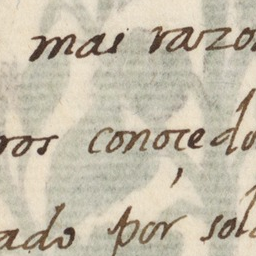 mas razo
ros conoçedo
ado por sola